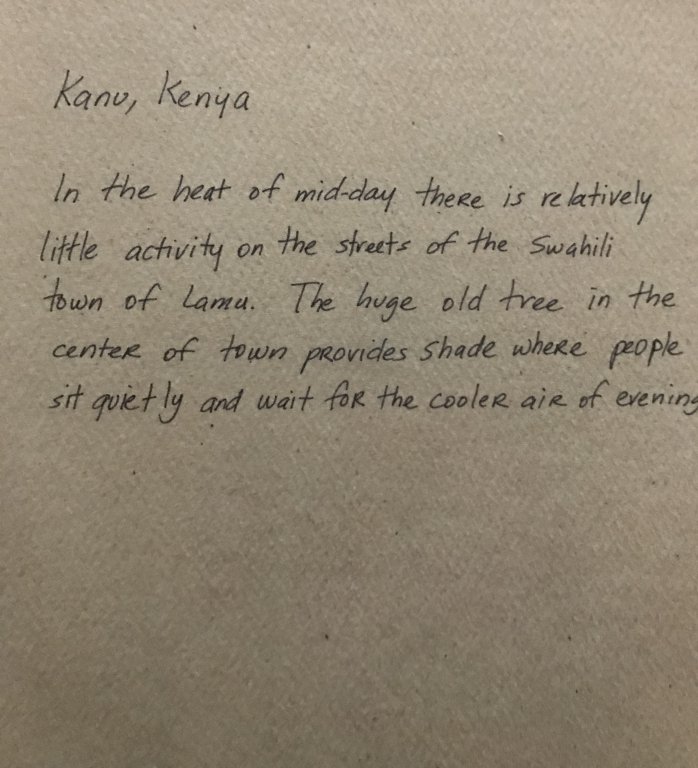 Kanu, Kenya
In the heat of mid-day there is relatively
little activity on the streets of the Swahili
town of Lamu. The huge old tree in the
center of town provides shade where people
sit quietly and wait for the cooler air of evening